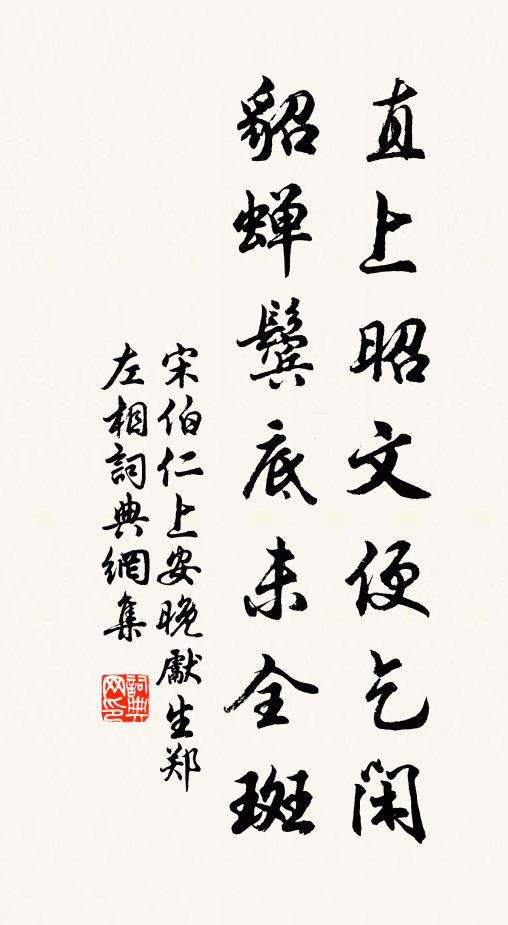 直上昭文便乞闲
貂蝉鬓底未全斑
宋伯仁上安晚獻生郑
左相詞典網集
詞典网印